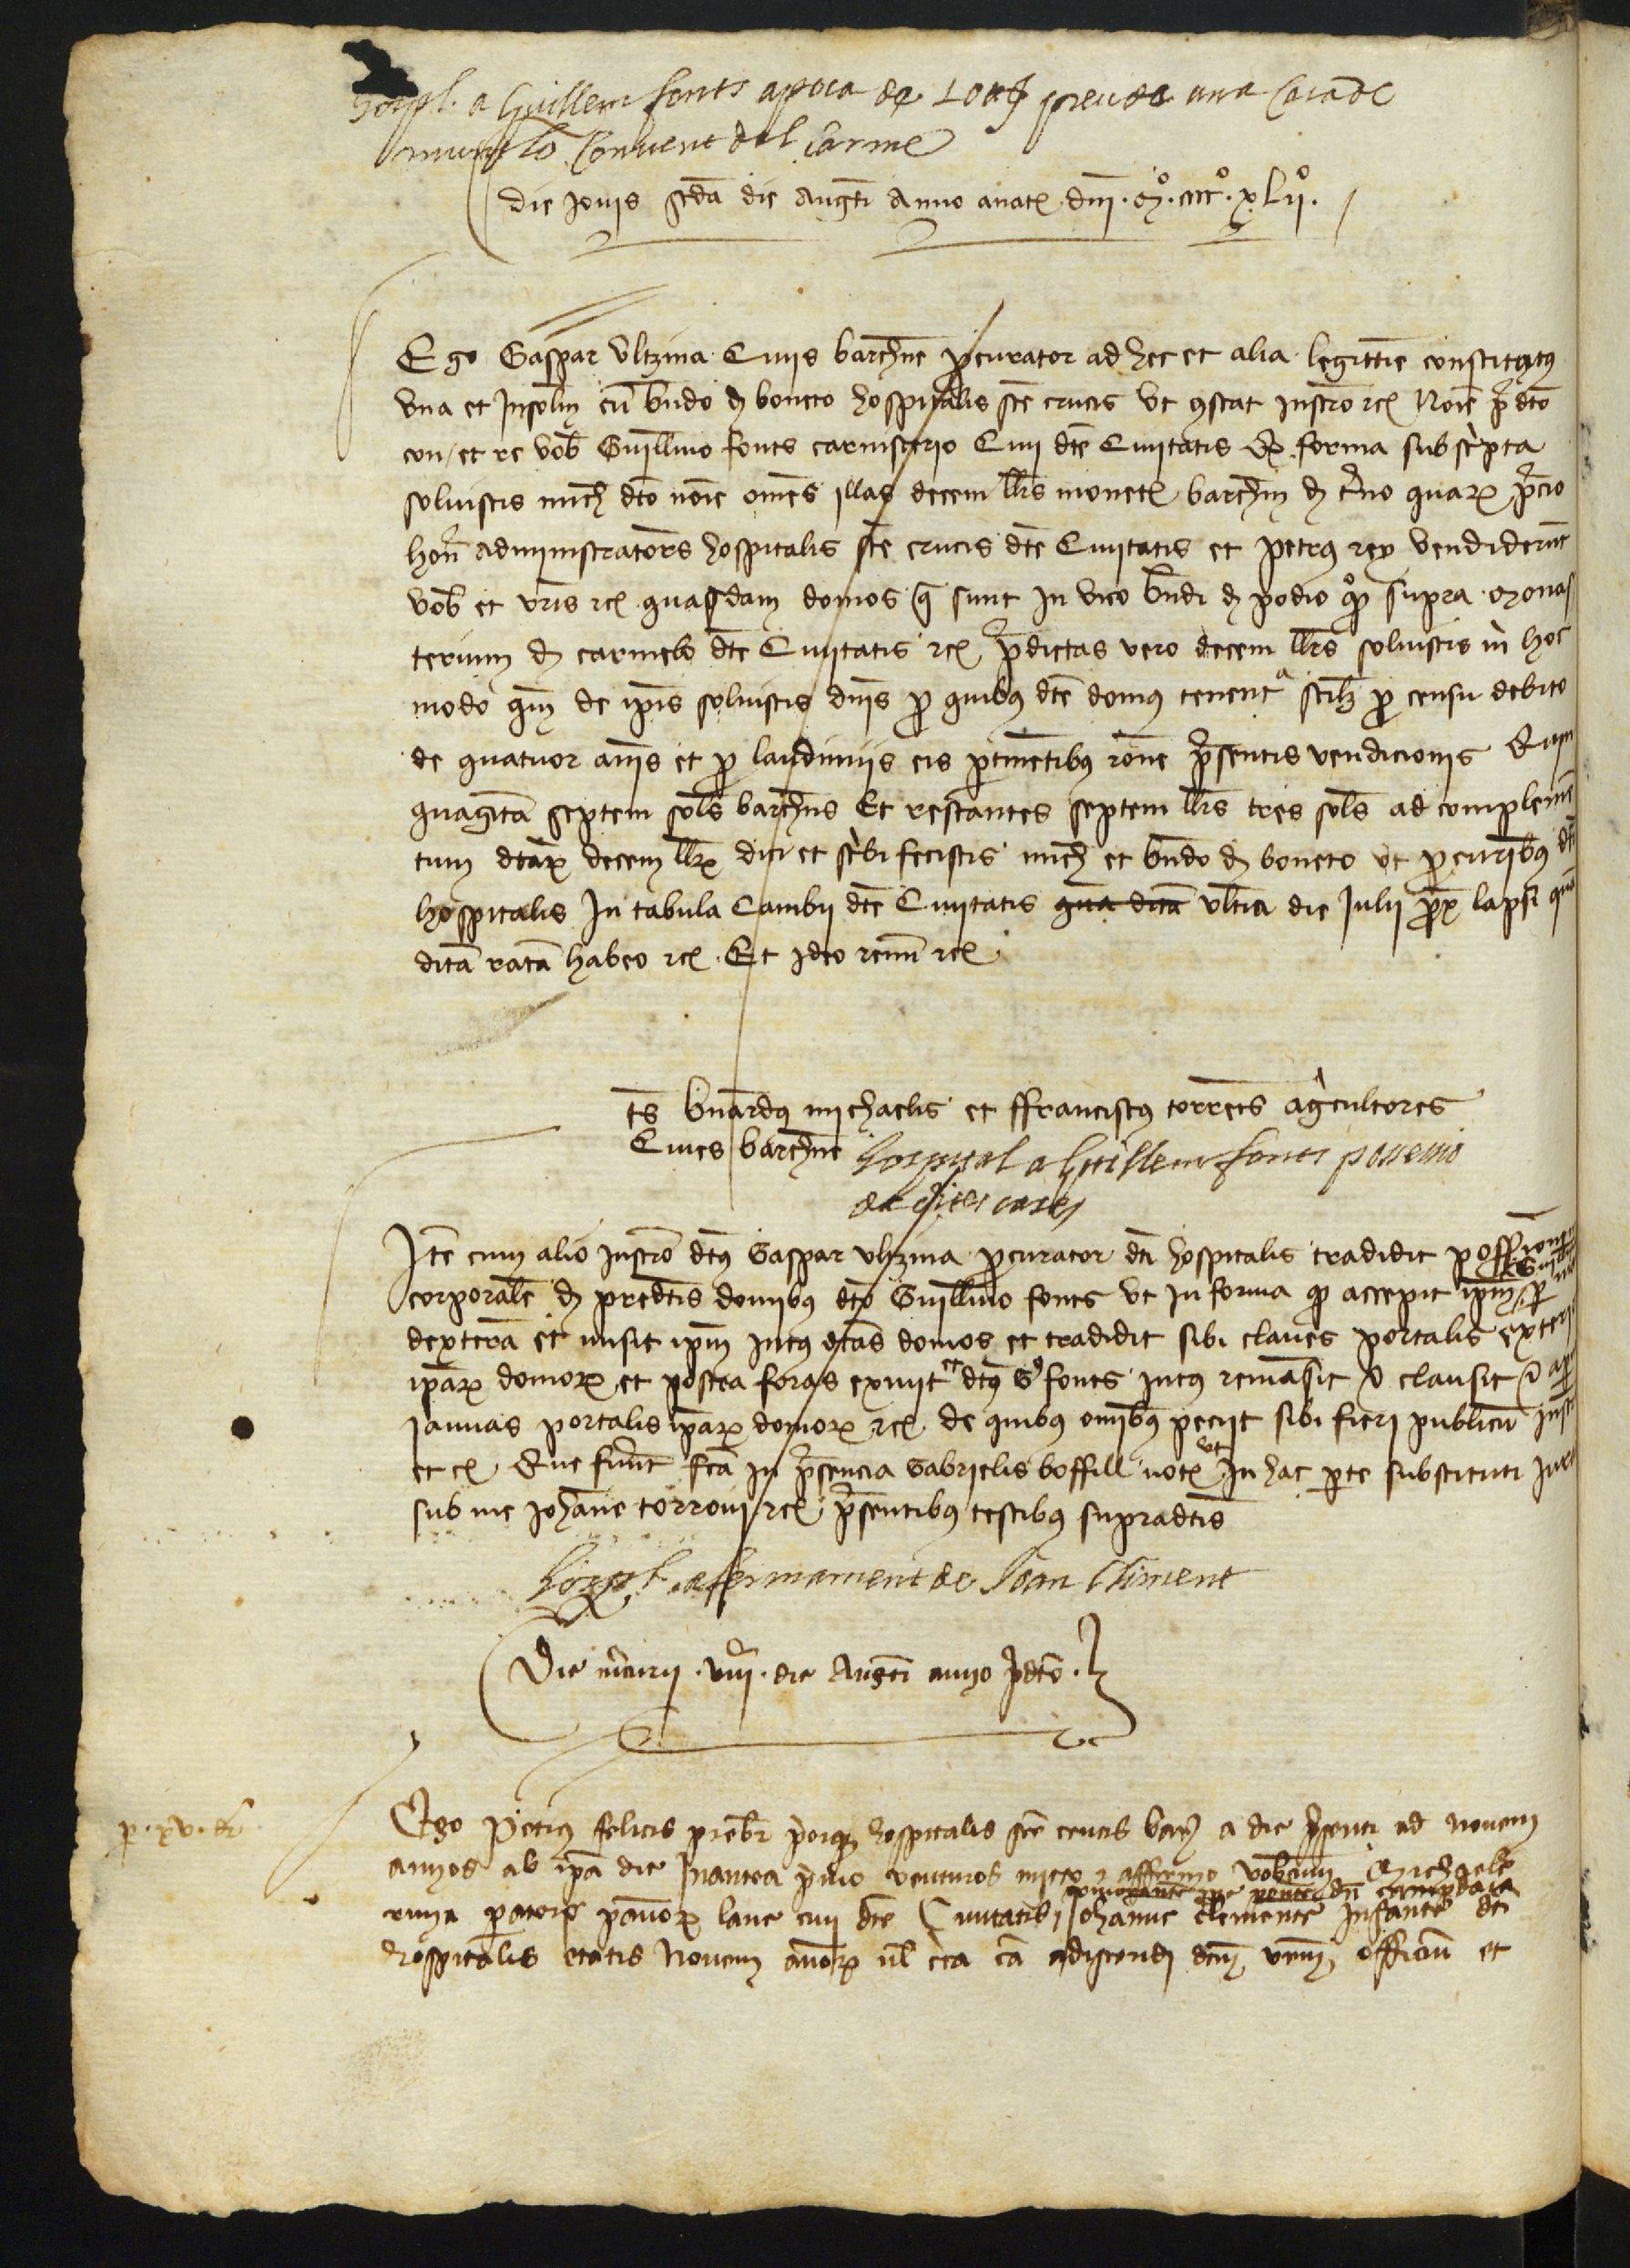 Hospl. a Guillem fonts apoca de 10 ℔ preu de una Casa de
munt lo Convent del Carme
die Jouis scda die Augti Anno anatx dni .mº.ccccº.xLijº.
Ego Gaspar Vltzina Ciuis barchne procurator ad hec et alia legittime constitutus
vna et Insolm cu bndo d boneto hospitalis ste crucis vt constat instro etc Noie prdto
con et re vob Guillmo fonts carnisserio Ciui dte Ciuitatis Qx forma subscripta
soluistis mich dto noie omes illas decem llrs monetx barchnn d t'no quarx precio
hon administratores hospitalis ste crucis dte Ciuitatis et petrus rex vendiderunt
vob et vris etc quasdam domos q sunt in vico bndi d podio qo supra monas
terium d carmelo dte Ciuitatis etc predictas vero decem llrs soluistis in hoc
modo qm de ipis soluistis dnis pro quibus dte domus tenent scilz pro censu debito
de quatuor anis et pro laudimiis eis ptinetibus rone presentis vendicionis Quin
quagita septem sols barchns Et restantes septem llrs tres sols ad complemen
tum dtarx decem llrx dici et scribi fecistis mich et bndo d boneto vt procuribus dti
hospitalis In tabula Cambii dte Ciuitatis qua dita vltia die Julii prox lapsi qua
dita rata habeo etc. Et ideo renu etc
ts bnardus michaelis et ffranciscus torrets agricultores
Ciues barchne
Hospital a Guillem fonts possessio
de dites cases
Ite cum alio instro dtus Gaspar vltzina procurator dti hospitalis tradidit possessione
corporale d predtis domibus dto Guillmo fonts vt in forma qo accepit ipm pro
dextera et misit ipm intus dtas domos et tradidit sibi claues portalis exteri
iparx domorx et postea foras exiuit et dtus Gº fonts intus remasit & clausit & apr
ianuas portalis iparx domorx etc de quibus omibus peciit sibi fieri publicu instr
et c Que fuert fca in presencia Gabrielis boffill notx vt in hac parte substituti
sub me Johane torroni etc presentibus testibus supradtis
hospl. afermament de Joan Climent
Die mercurii .viii. die Augti anno predto.
p. xv. dr
Ego Petrus felicis prebr priorqz hospitalis ste crucis barch a die presenti ad nouem
annos ab ipa die Inantea primo venturos mitto & affirmo vobcum Michaele
ruyra paratore panorx lane ciui dte Ciuitatis Johanne clemente Infante dti
Hospitalis etatis Nouem anorx vl cca ca adiscendi dcm vrm officiu et